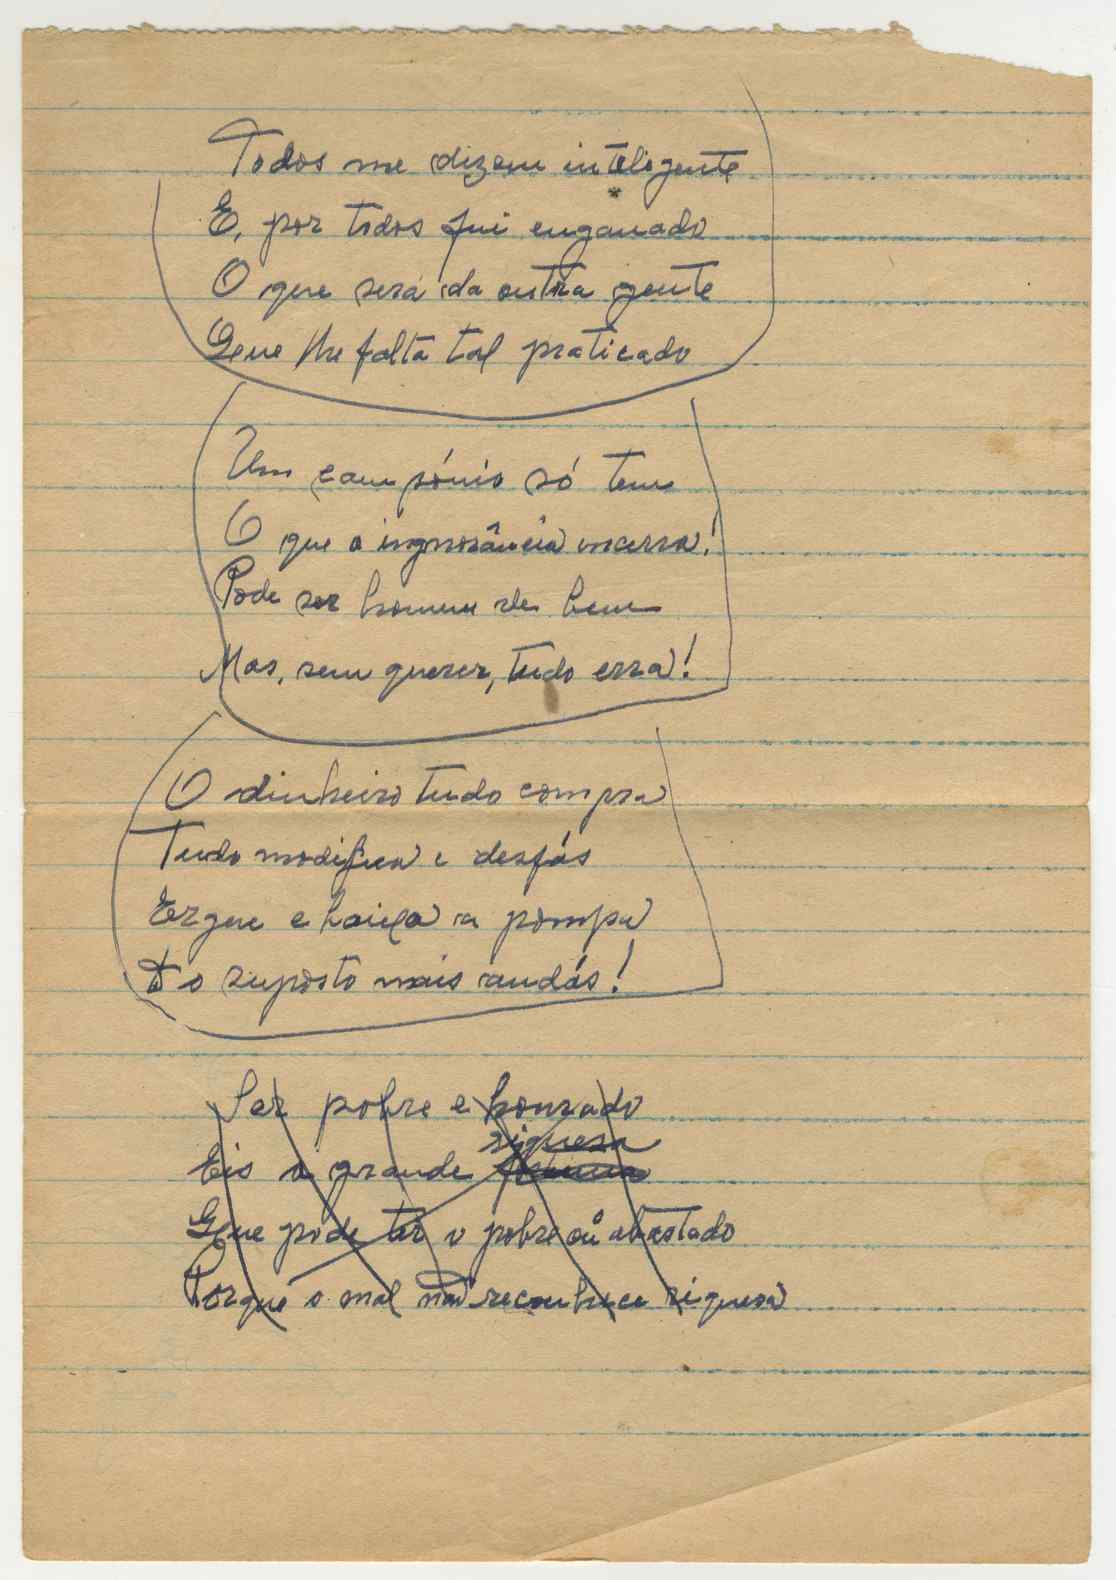 Todos me dizem inteligente
E, por todos fui enganado
O que será da outra gente
Que lhe falta tal praticado
Um campónio só tem
O que a ingnorância encerra!
Pode ser homem de bem
Mas, sem querer, tudo erra!
O dinheiro tudo compra
Tudo modifica e desfás
Ergue e baixa a pompa
Do suposto mais audás!
Ser pobre e honrado
riquesa
Eis a grande
Que pode ter o pobre ou abastado
Porque o mal não reconhece riquesa